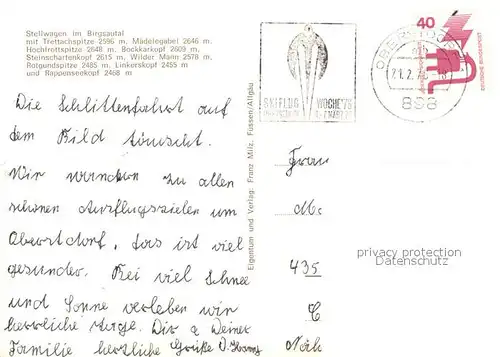 Stellwagen im Birgsautal
mit Trettachspitze 2596 m, Mädelegabel 2646 m.
Hochfrottspitze 2648 m, Bockkarkopf 2609 m,
Steinschartenkopf 2615 m, Wilder Mann 2578 m,
Rotgundspitze 2485 m, Linkerskopf 2455 m
und Rappenseekopf 2468 m
SKIFLUG WOCHE
OBERSTDORF
21.2.
898
40
DEUTSCHE BUNDESPOST
Die Schlittenfahrt auf
dem Bild täuscht.
Wir wandern zu allen
schönen Ausflugszielen um
Oberstdorf, das ist viel
gesunder. Bei viel Schnee
und Sonne verleben wir
herrliche Tage. Dir u Deiner
Familie herzliche Grüße
Eigentum und Verlag: Franz Milz, Füssen/Allgäu
Frau
435
privacy protection
Datenschutz